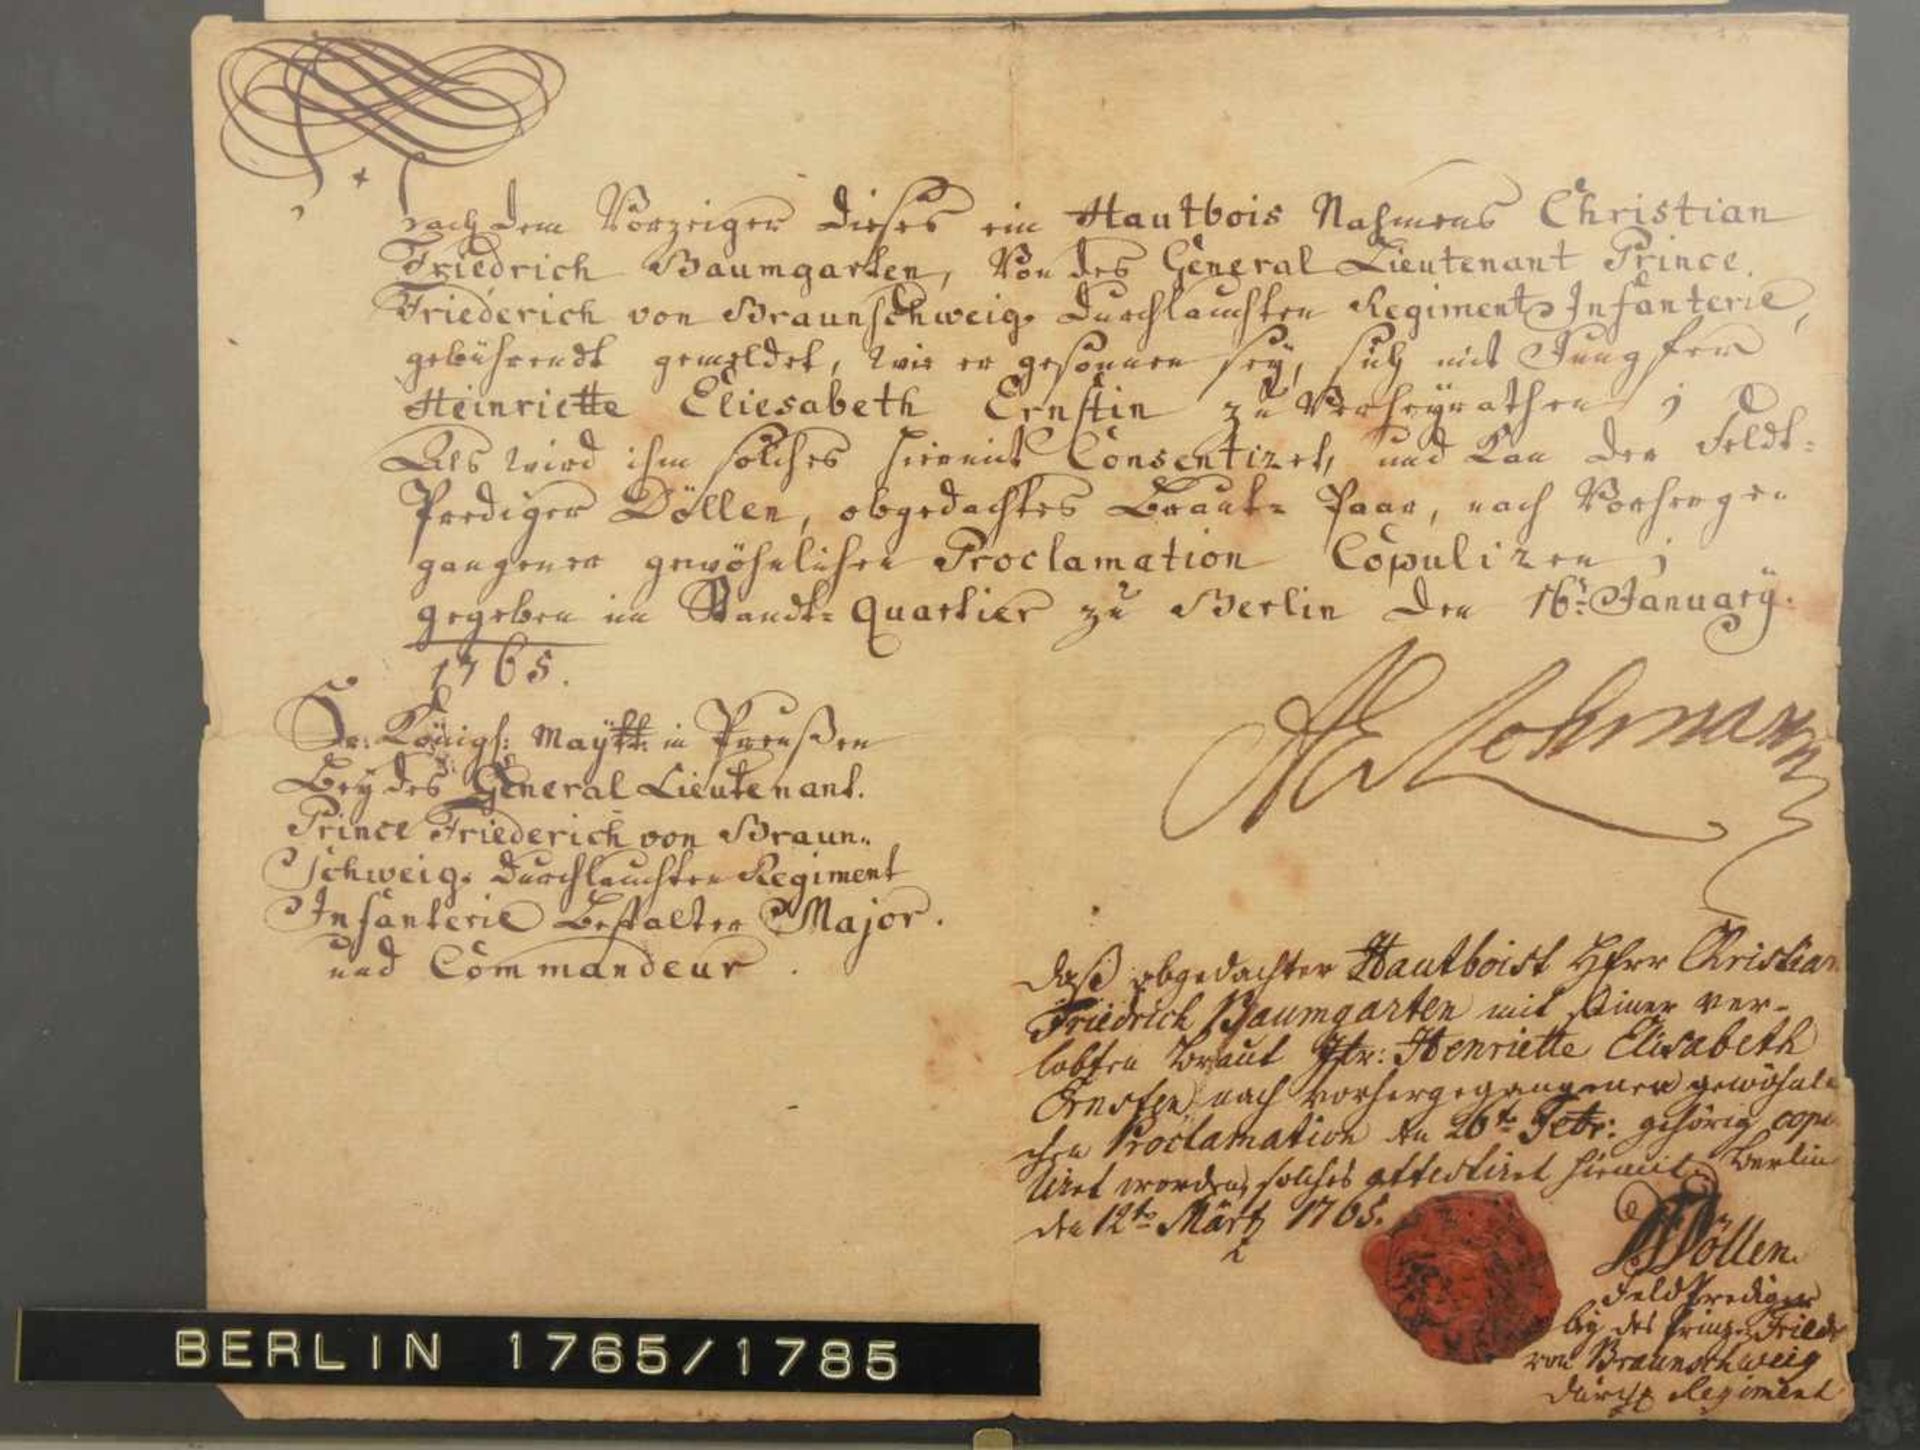 nach dem Vorzeiger dieses ein Hautbois Nahmens Christian
Friedrich Baumgarten, Von des General Lieutenant Prince
Friederich von Braunschweig. Durchlauchten Regiment Infanterie,
gebührendt gemeldet, wie er gesonnen sey, sich mit Jungfer
Heinriette Eliesabeth Ernstin zu Verheyrathen ;
Als wird ihm solches hiermit Consentiret, und kan der Feldt-
Prediger Döllen, obgedachtes Braut- Paar, nach Vorherge-
gangener gewöhnlichen Proclamation Copuliren ;
gegeben im Standt- Quartier zu Berlin den 16t: January.
1765.
Sr. Königl: Maytt: in Preußen
Bey des General Lieutenant.
Prince Friederich von Braun-
schweig. Durchlauchten Regiment
Infanterie Bestalter Major.
und Commandeur.
Lohmann
Daß obgedachter Hautboist Herr Christian
Friedrich Baumgarten mit seiner ver-
lobten Braut Jfr: Henriette Elisabeth
Ernsten nach vorhergegangener gewöhnli
chen Proclamation den 26te Febr: gehörig copu
liret worden, solches attestiret hiemit. Berlin
den 12te Märtz 1765.
Döllen.
Feldprediger
bey des Prinz Friedr
von Braunschweig
Durchl Regiment
BERLIN 1765/1785